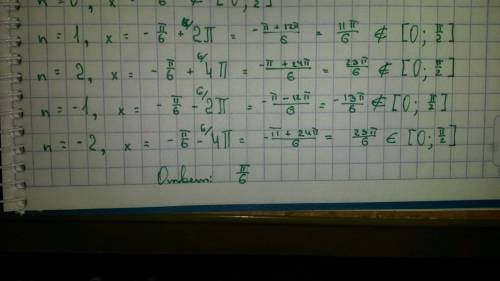 n = 0, x = - π/6 ∉ [0; π/2]
n = 1, x = - π/6 + 6/ 2π = (-π + 12π)/6 = 11π/6 ∉ [0; π/2]
n = 2, x = - π/6 + 6/ 4π = (-π + 24π)/6 = 23π/6 ∉ [0; π/2]
n = -1, x = - π/6 - 6/ 2π = (-π - 12π)/6 = - 13π/6 ∉ [0; π/2]
n = -2, x = - π/6 - 6/ 4π = (-π + 24π)/6 = 23π/6 ∈ [0; π/2]
Ответ: π/6